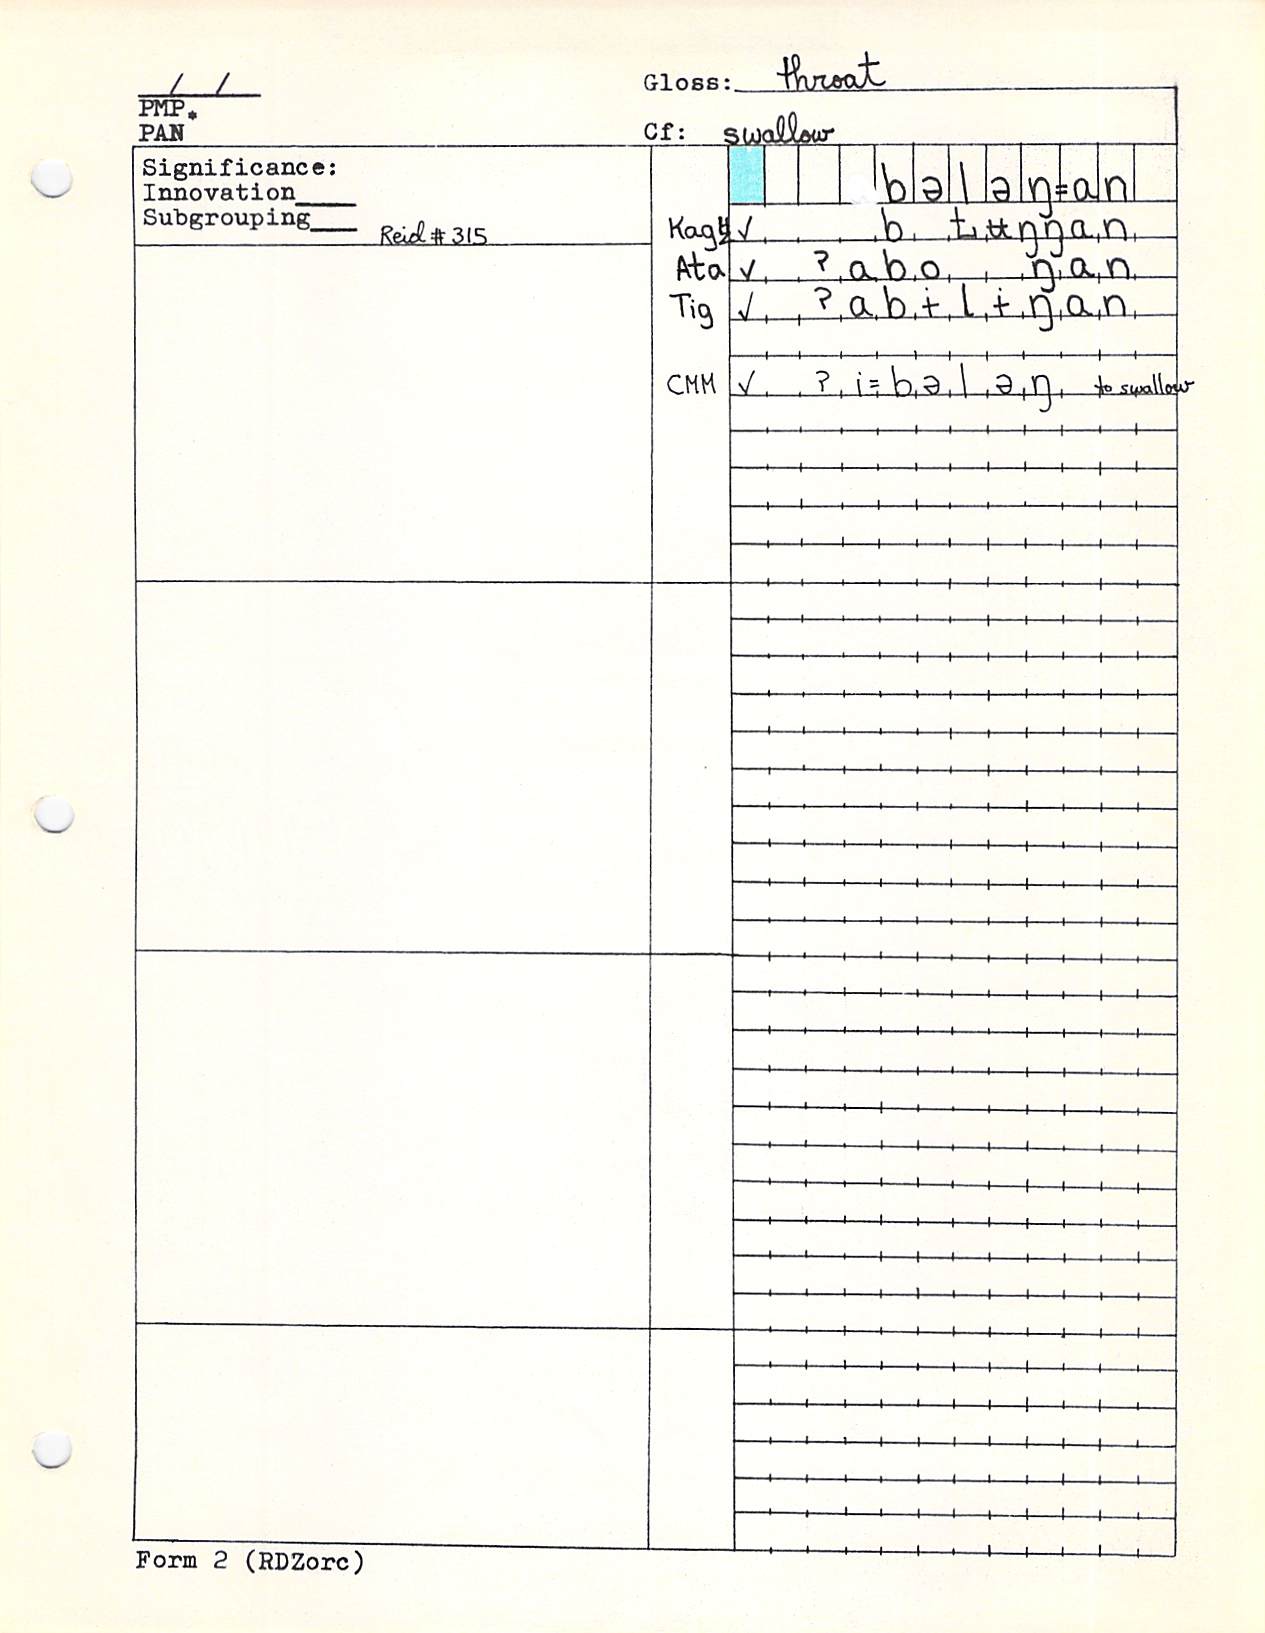 / /
PMP*
PAN
Gloss: throat
Cf: swallow
Significance:
Innovation____
Subgrouping___
Reid # 315
bələŋ=an
✓ b tʉŋŋan
Ata ✓ ʔabo ŋan
Tig ✓ ʔabɨlɨŋan
CMM ✓ ʔi=bələŋ to swallow
Form 2 (RDZorc)